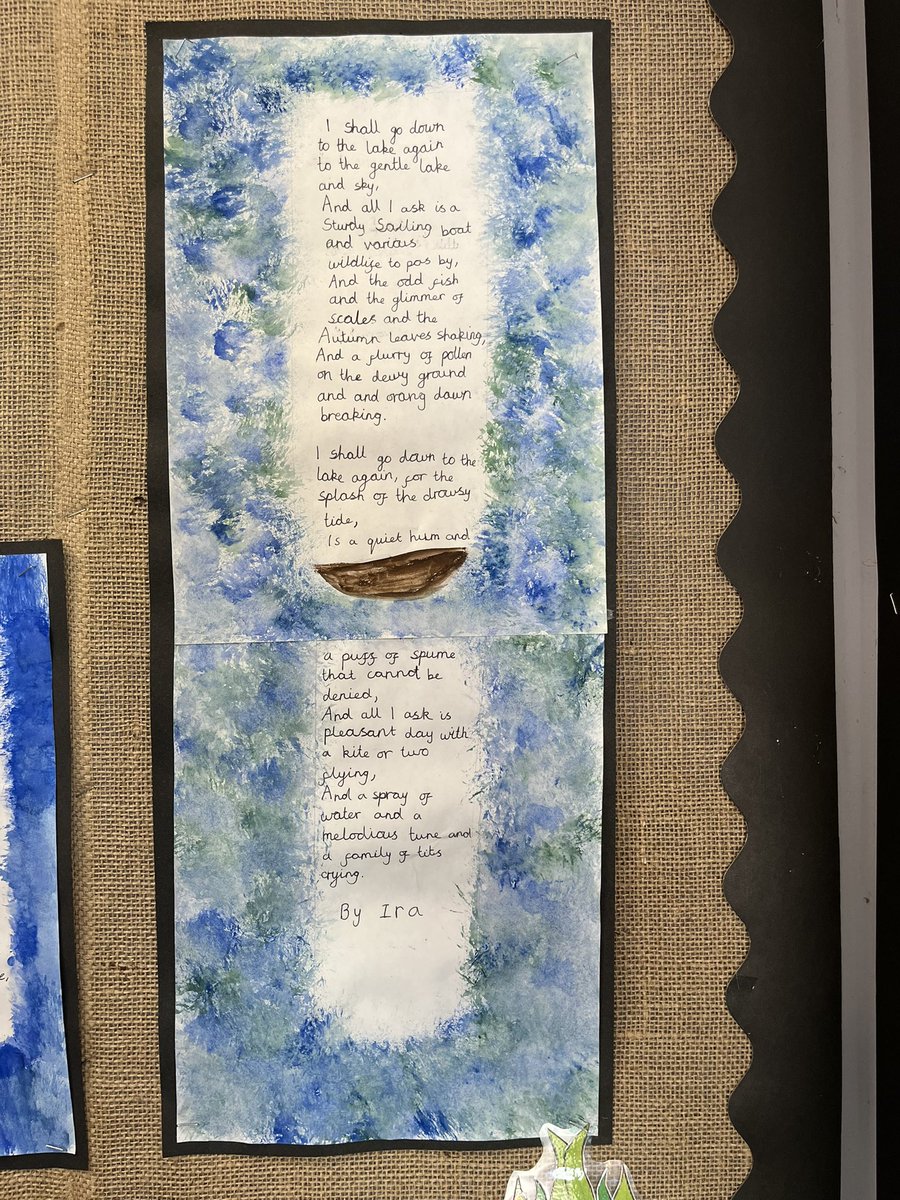 I shall go down
to the lake again
to the gentle lake
and sky,
And all I ask is a
Sturdy Sailing boat
and various
wildlife to pas by,
And the odd fish
and the glimmer of
scales and the
Autumn leaves shaking,
And a flurry of pollen
on the dewy ground
and and orang dawn
breaking.
I shall go down to the
lake again, for the
splash of the drowsy
tide,
Is a quiet hum and
a puff of spume
that cannot be
denied,
And all I ask is
pleasant day with
a kite or two
flying,
And a spray of
water and a
melodious tune and
a family of tits
crying.
By Ira
e,